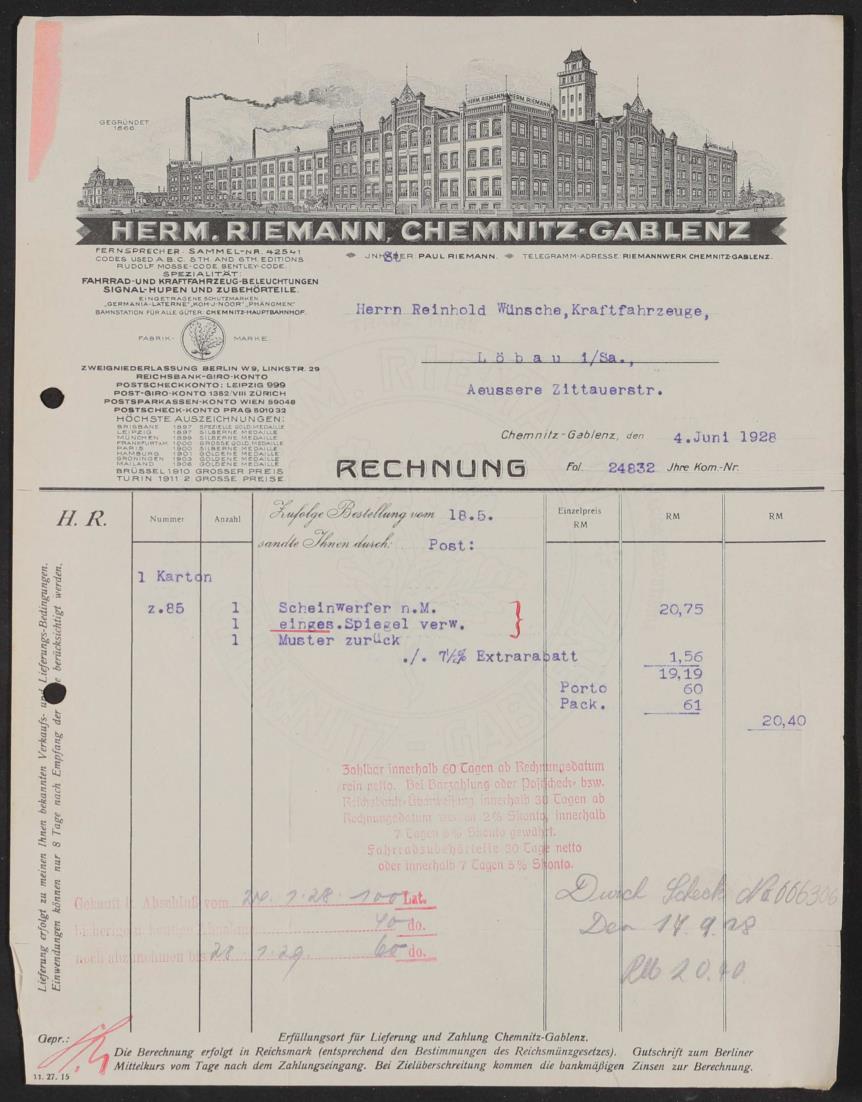 GEGRÜNDET
1866
HERM. RIEMANN
HERM. RIEMANN
HERM. RIEMANN, CHEMNITZ-GABLENZ
FERNSPRECHER SAMMEL-NR. 42541
CODES USED A.B.C. 5TH AND 6TH EDITIONS
RUDOLF MOSSE-CODE BENTLEY-CODE.
SPEZIALITÄT:
FAHRRAD-UND KRAFTFAHRZEUG-BELEUCHTUNGEN
SIGNAL-HUPEN UND ZUBEHÖRTEILE.
EINGETRAGENE SCHUTZMARKEN
„GERMANIA-LATERNE“, „KOH-J-NOOR“, „PHÄNOMEN“
BAHNSTATION FÜR ALLE GÜTER: CHEMNITZ-HAUPTBAHNHOF.
FABRIK- MARKE
ZWEIGNIEDERLASSUNG BERLIN W9, LINKSTR. 29
REICHSBANK-GIRO-KONTO
POSTSCHECKKONTO: LEIPZIG 999
POST-GIRO-KONTO 1382/VIII ZÜRICH
POSTSPARKASSEN-KONTO WIEN 59048
POSTSCHECK-KONTO PRAG 501032
HÖCHSTE AUSZEICHNUNGEN:
BRISBANE 1897 SPEZIELLE GOLD.MEDAILLE
LEIPZIG 1897 SILBERNE MEDAILLE
MÜNCHEN 1899 SILBERNE MEDAILLE
FRANKFURT A/M. 1900 GROSSE GOLD.MEDAILLE
PARIS 1900 SILBERNE MEDAILLE
HAMBURG 1901 GOLDENE MEDAILLE
GRÖNINGEN 1903 GOLDENE MEDAILLE
MAILAND 1906 GOLDENE MEDAILLE
BRÜSSEL 1910 GROSSER PREIS
TURIN 1911 2 GROSSE PREISE
JNHABER PAUL RIEMANN. TELEGRAMM-ADRESSE: RIEMANNWERK CHEMNITZ-GABLENZ.
Herrn Reinhold Wünsche,Kraftfahrzeuge,
Löbau i/Sa.,
Aeussere Zittauerstr.
Chemnitz-Gablenz, den 4.Juni 1928
RECHNUNG
Fol. 24832 Jhre Kom.-Nr.
H. R.
Nummer
Anzahl
Zufolge Bestellung vom 18.5.
sandte Ihnen durch: Post:
Einzelpreis
RM
RM
RM
1 Karton
z.85 1 Scheinwerfer n.M. 20,75
1 einges.Spiegel verw.
1 Muster zurück
./. 7½% Extrarabatt 1,56
19,19
Porto 60
Pack. 61
20,40
Zahlbar innerhalb 60 Tagen ab Rechnungsdatum
rein netto. Bei Barzahlung oder Postscheck- bzw.
Reichsbank-Überweisung innerhalb 30 Tagen ab
Rechnungsdatum werden 2% Skonto, innerhalb
7 Tagen 5% Skonto gewährt.
Fahrradzubehörteile 30 Tage netto
oder innerhalb 7 Tagen 5% Skonto.
Gekauft lt. Abschluß vom 1.28. 100 Lat.
40 do.
noch abzunehmen bis 28 1.29. 60 do.
Durch Scheck No 006306
Den 17.9.28
RM 20.40
Lieferung erfolgt zu meinen Ihnen bekannten Verkaufs- und Lieferungs-Bedingungen.
Einwendungen können nur 8 Tage nach Empfang der berücksichtigt werden.
Gepr.:
Erfüllungsort für Lieferung und Zahlung Chemnitz-Gablenz.
Die Berechnung erfolgt in Reichsmark (entsprechend den Bestimmungen des Reichsmünzgesetzes). Gutschrift zum Berliner
Mittelkurs vom Tage nach dem Zahlungseingang. Bei Zielüberschreitung kommen die bankmäßigen Zinsen zur Berechnung.
11. 27. 15